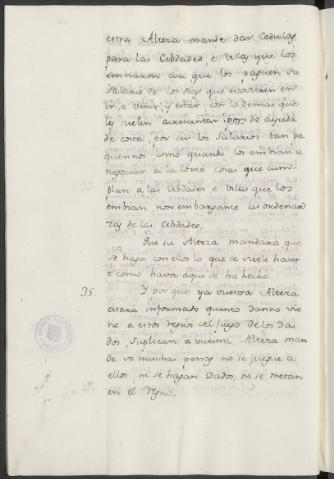 estra Alteza mande dar Cedulas
para las Cibdades e Villas que los
embiaron aca que los paguen su
salario de los dias que estovieren en
ir, e venir, y estar, con lo demas que
les suelen acrecentar por de ayuda
de costa, por ser los salarios tan pe
quennos como quando los embian a
negociar a la Corte cosas que cum
plan a las Cibdades e Villas que los
embian, non embargante las ordenan
zas de las Cibdades,
Que su Alteza mandara que
se haga con ellos lo que se suele hacer
e como hasta aqui se ha hecho.
35. Y por que ya vuestra Alteza
estará informado quanto danno vie
ne a estos Regnos del juego de los da
dos, suplican a vuestra Alteza man
de so muchas penas no se juegue a
ellos, ni se hagan Dados, ni se metan
en el Regno.